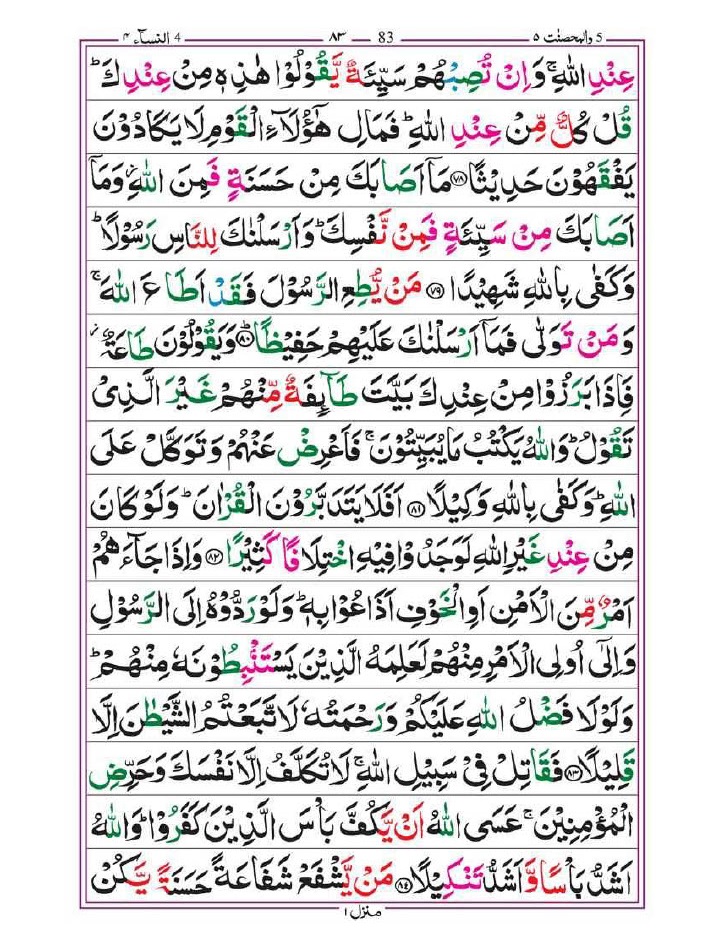 5 والمحصنت ۵ 83 ۸۳ 4 النسآء ۴
عِنْدِ اللّٰهِ ۚ وَاِنْ تُصِبْهُمْ سَیِّئَةٌ یَّقُوْلُوْا هٰذِهٖ مِنْ عِنْدِكَ ؕ
قُلْ كُلٌّ مِّنْ عِنْدِ اللّٰهِ ؕ فَمَالِ هٰۤؤُلَآءِ الْقَوْمِ لَا یَكَادُوْنَ
یَفْقَهُوْنَ حَدِیْثًا ۷۸ مَاۤ اَصَابَكَ مِنْ حَسَنَةٍ فَمِنَ اللّٰهِ ؗ وَمَاۤ
اَصَابَكَ مِنْ سَیِّئَةٍ فَمِنْ نَّفْسِكَ ؕ وَاَرْسَلْنٰكَ لِلنَّاسِ رَسُوْلًا ؕ
وَكَفٰی بِاللّٰهِ شَهِیْدًا ۷۹ مَنْ یُّطِعِ الرَّسُوْلَ فَقَدْ اَطَاعَ اللّٰهَ ۚ
وَمَنْ تَوَلّٰی فَمَاۤ اَرْسَلْنٰكَ عَلَیْهِمْ حَفِیْظًا ؕ ۸۰ وَیَقُوْلُوْنَ طَاعَةٌ ؗ
فَاِذَا بَرَزُوْا مِنْ عِنْدِكَ بَیَّتَ طَآىِٕفَةٌ مِّنْهُمْ غَیْرَ الَّذِیْ
تَقُوْلُ ؕ وَاللّٰهُ یَكْتُبُ مَا یُبَیِّتُوْنَ ۚ فَاَعْرِضْ عَنْهُمْ وَتَوَكَّلْ عَلَی
اللّٰهِ ؕ وَكَفٰی بِاللّٰهِ وَكِیْلًا ۸۱ اَفَلَا یَتَدَبَّرُوْنَ الْقُرْاٰنَ ؕ وَلَوْ كَانَ
مِنْ عِنْدِ غَیْرِ اللّٰهِ لَوَجَدُوْا فِیْهِ اخْتِلَافًا كَثِیْرًا ۸۲ وَاِذَا جَآءَهُمْ
اَمْرٌ مِّنَ الْاَمْنِ اَوِ الْخَوْفِ اَذَاعُوْا بِهٖ ؕ وَلَوْ رَدُّوْهُ اِلَی الرَّسُوْلِ
وَاِلٰۤی اُولِی الْاَمْرِ مِنْهُمْ لَعَلِمَهُ الَّذِیْنَ یَسْتَنْۢبِطُوْنَهٗ مِنْهُمْ ؕ
وَلَوْلَا فَضْلُ اللّٰهِ عَلَیْكُمْ وَرَحْمَتُهٗ لَاتَّبَعْتُمُ الشَّیْطٰنَ اِلَّا
قَلِیْلًا ۸۳ فَقَاتِلْ فِیْ سَبِیْلِ اللّٰهِ ۚ لَا تُكَلَّفُ اِلَّا نَفْسَكَ وَحَرِّضِ
الْمُؤْمِنِیْنَ ۚ عَسَی اللّٰهُ اَنْ یَّكُفَّ بَاْسَ الَّذِیْنَ كَفَرُوْا ؕ وَاللّٰهُ
اَشَدُّ بَاْسًا وَّاَشَدُّ تَنْكِیْلًا ۸۴ مَنْ یَّشْفَعْ شَفَاعَةً حَسَنَةً یَّكُنْ
منزل ۱